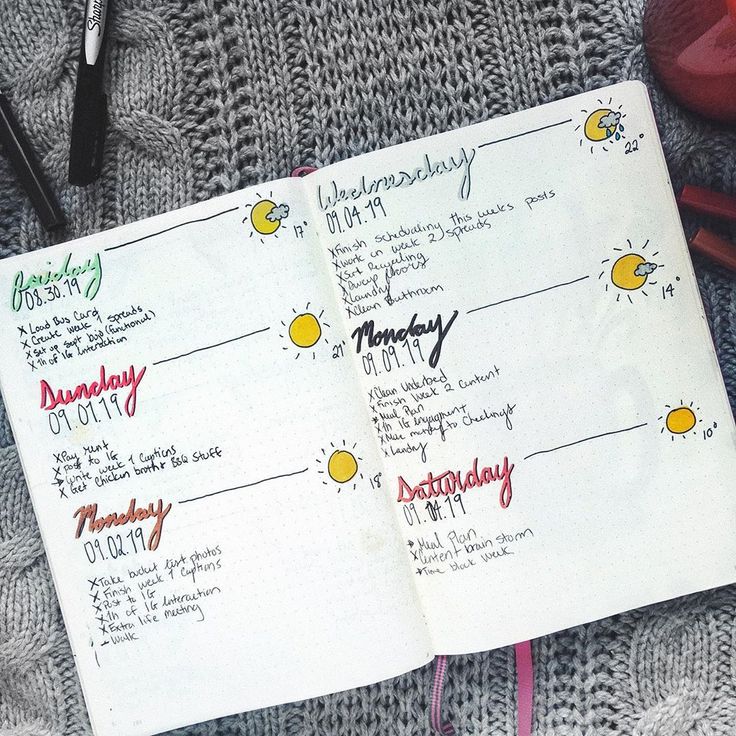 Sharpie
Friday
08.30.19
17°
X Load Bus Card
X Create week 1 spreads
X Set up sept bujo (functional)
X 1h of IG Interaction
Sunday
09.01.19
21°
X Pay rent
X Post to IG
Write week 1 Captions
X Get Chicken broth + BBQ stuff
Monday
09.02.19
X Take bucket list photos
X Finish week 1 Captions
X Post to IG
X 1h of IG Interaction
X Extra life meeting
Walk
Wednesday
09.04.19
22°
X Finish scheduling this weeks posts
X Work on week 2 spreads
X Sort Recycling
X Swoop floors
X Laundry
X Clean Bathroom
Monday
09.09.19
14°
X Clean Underbed
X Finish Week 2 Content
Meal Plan
X 1h IG engagment
X Move money to Checkings
X Laundry
Saturday
09.14.19
10°
Meal Plan
X Content brain storm
Time block week